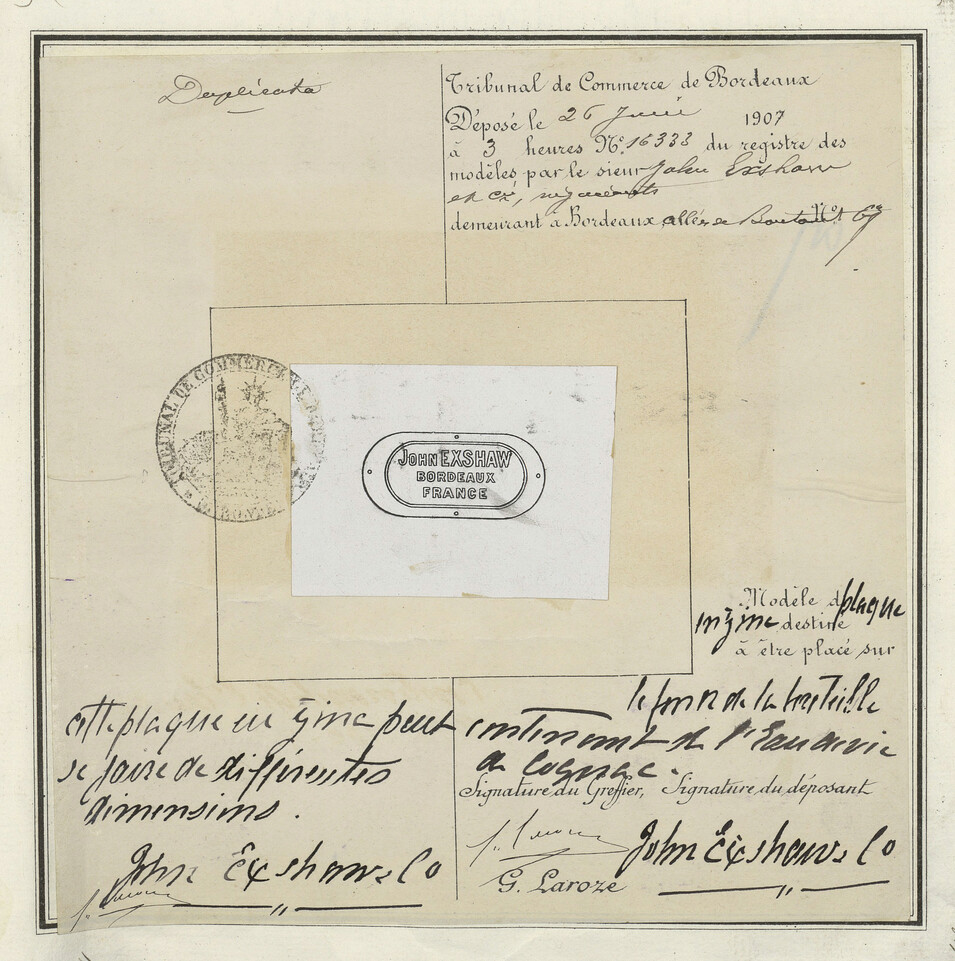 Duplicata
Tribunal de Commerce de Bordeaux
Déposé le 26 Juin 1907
à 3 heures N° 16333 du registre des
modèles par le sieur John Exshaw
et Cie, négociants
demeurant à Bordeaux, allées de Boutaut N° 69
TRIBUNAL DE COMMERCE DE BORDEAUX
GIRONDE
JOHN EXSHAW
BORDEAUX
FRANCE
Modèle de plaque
en zinc destiné
à être placé sur
le fond de la bouteille
contenant de l'Eau de vie
de Cognac.
cette plaque en zinc peut
se faire de différentes
dimensions.
Signature du Greffier, Signature du déposant
John Exshaw & Co
G. Laroze
John Exshaw & Co